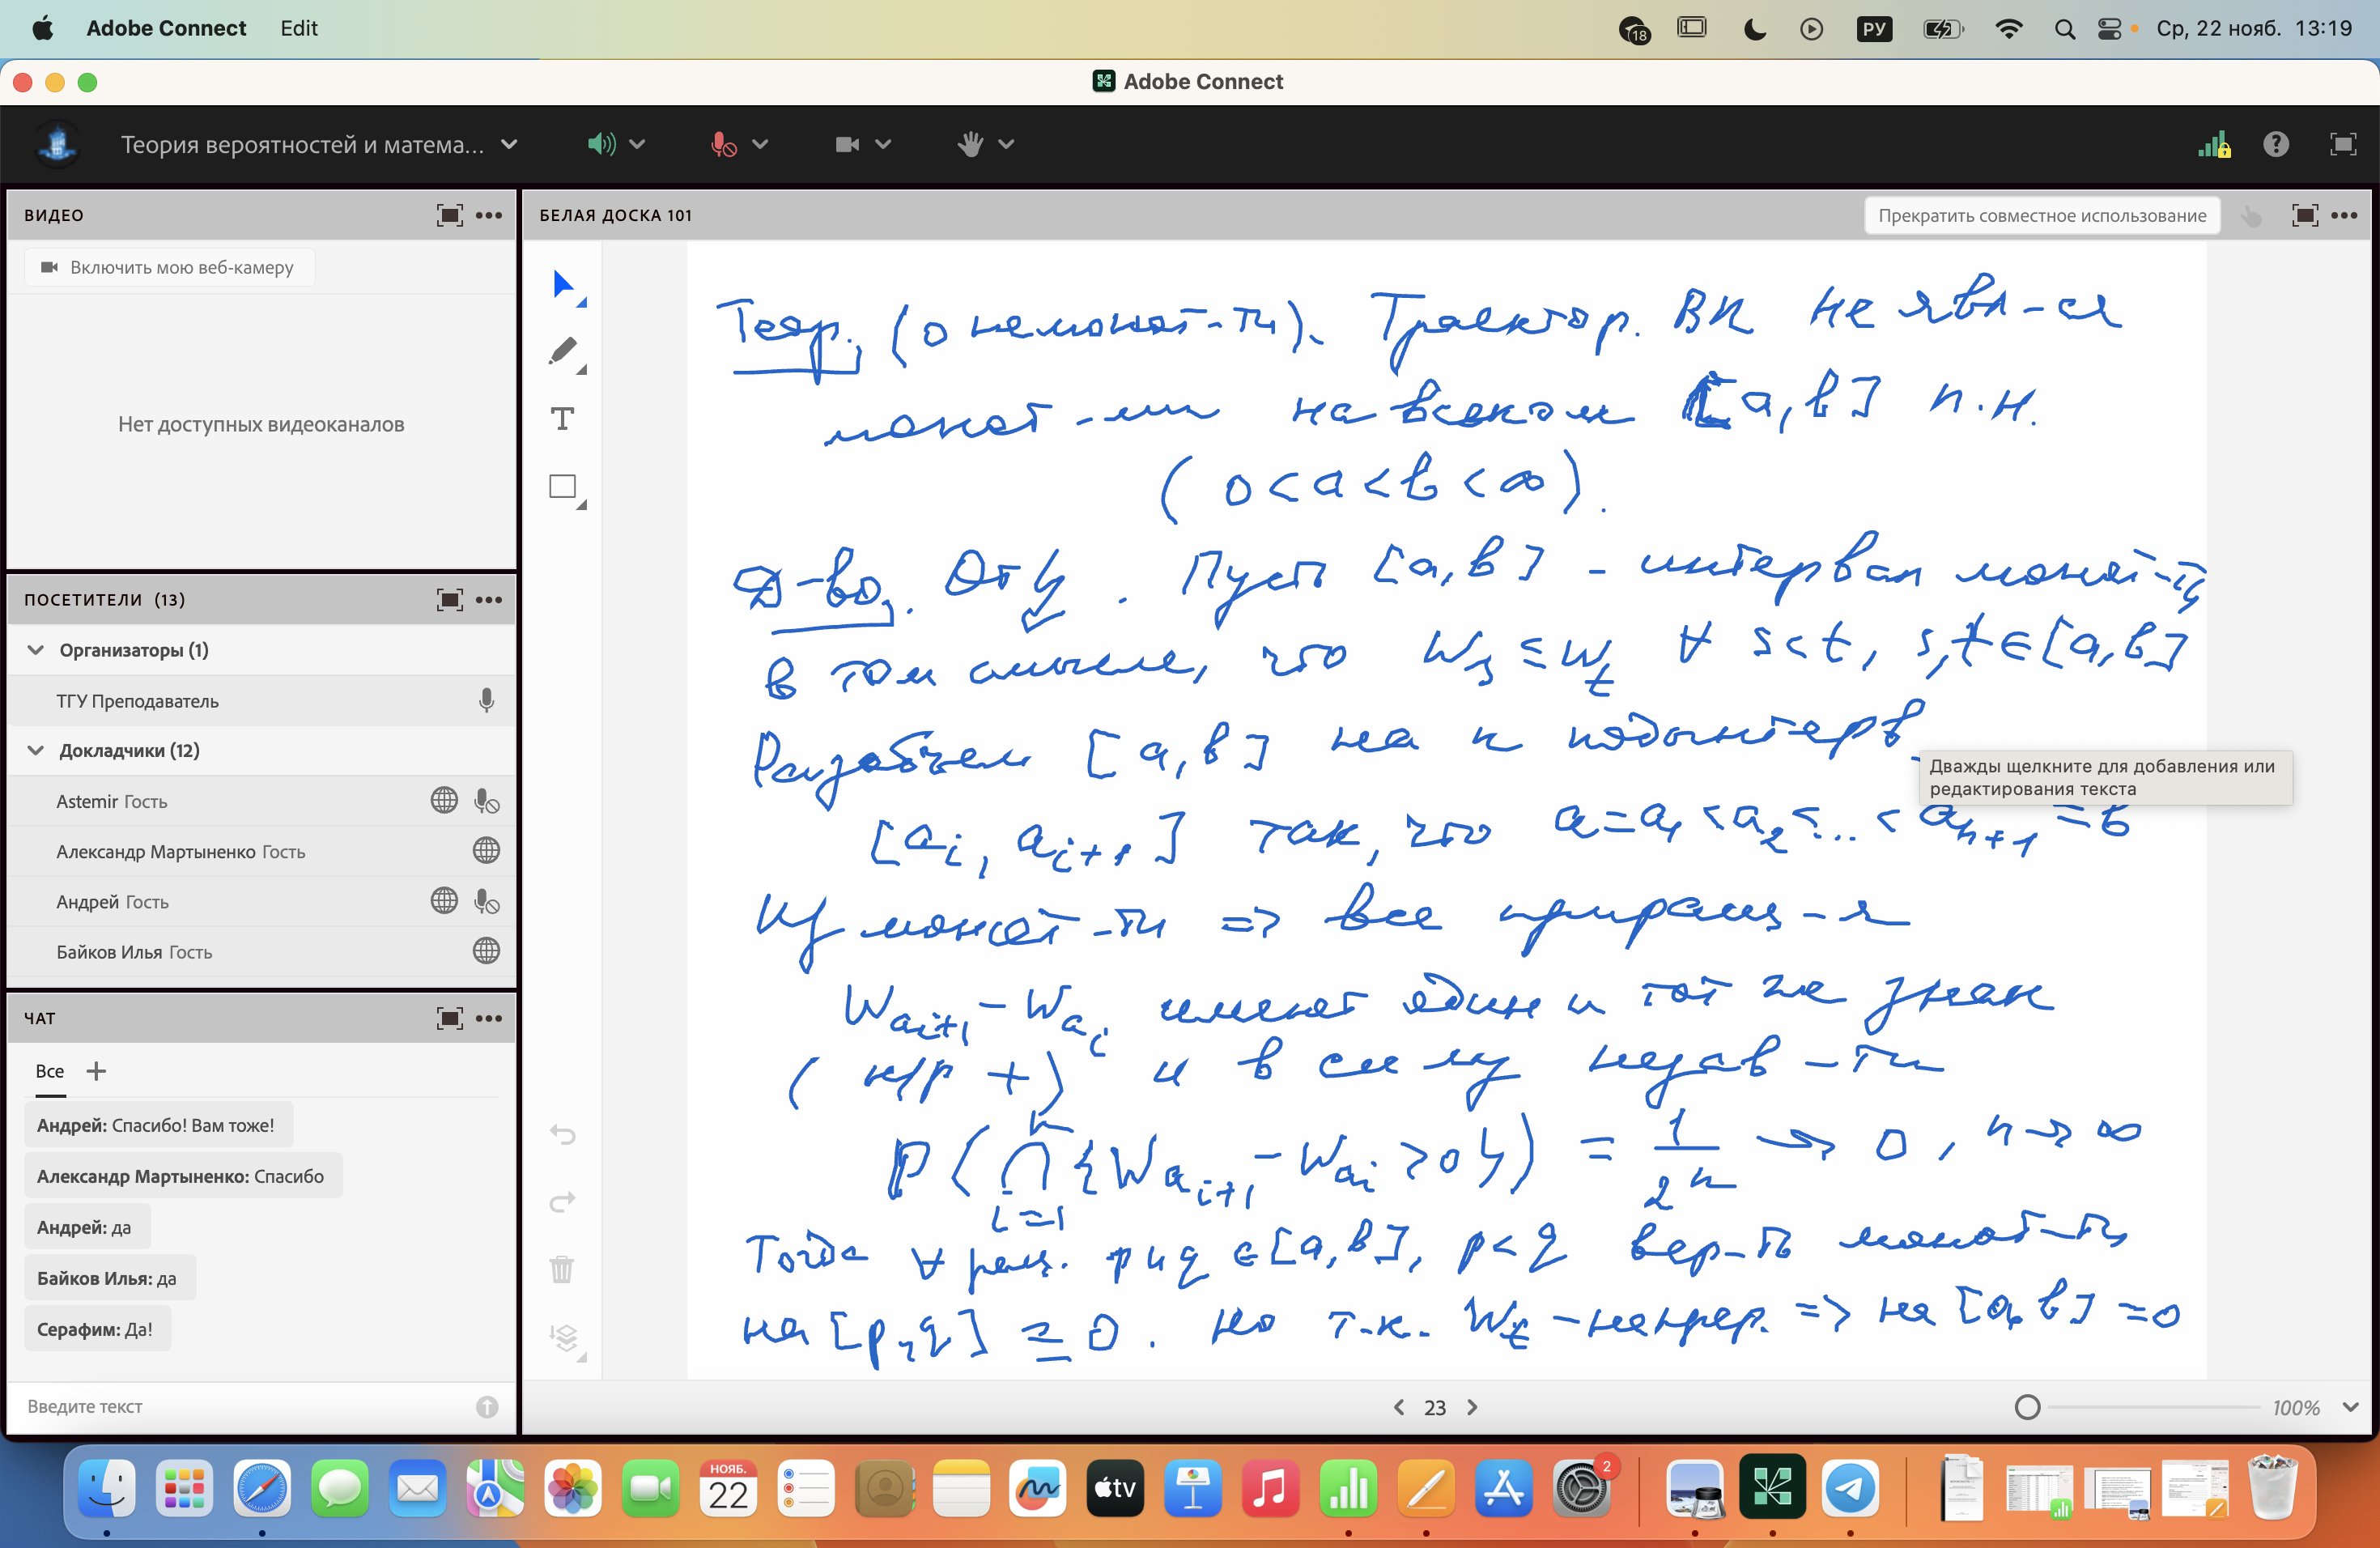 Adobe Connect Edit 18 РУ Ср, 22 нояб. 13:19
Adobe Connect
Теория вероятностей и матема...
ВИДЕО
Включить мою веб-камеру
Нет доступных видеоканалов
ПОСЕТИТЕЛИ (13)
Организаторы (1)
ТГУ Преподаватель
Докладчики (12)
Astemir Гость
Александр Мартыненко Гость
Андрей Гость
Байков Илья Гость
ЧАТ
Все
Андрей: Спасибо! Вам тоже!
Александр Мартыненко: Спасибо
Андрей: да
Байков Илья: да
Серафим: Да!
Введите текст
БЕЛАЯ ДОСКА 101
Прекратить совместное использование
Теор. (о немонот-ти). Траектор. ВП не явл-ся
монот-ми на всяком [a,b] п.н.
(0<a<b<∞).
Д-во. От ↯. Пусть [a,b] - интервал монот-ти
в том смысле, что W_s ≤ W_t ∀ s<t, s,t∈[a,b]
Разобьем [a,b] на n подинтерв.
Дважды щелкните для добавления или
редактирования текста
[a_i, a_{i+1}] так, что a=a_1<a_2<...<a_{n+1}=b
Из монот-ти => все приращ-я
W_{a_{i+1}} - W_{a_i} имеют один и тот же знак
(н/р +) и в силу незав-ти
P(⋂_{i=1}^{n} {W_{a_{i+1}} - W_{a_i} > 0}) = 1/2^n → 0, n→∞
Тогда ∀ рац. p и q ∈[a,b], p<q вер-ть монот-ти
на [p,q] = 0. Но т.к. W_t - непрер. => на [a,b] =0
23
100%
НОЯБ.
22
tv
2